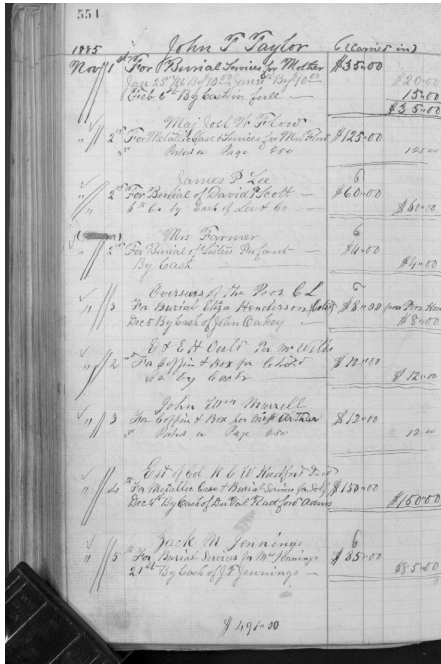 551
1885 John T Taylor (Carried in)
Nov 1st For Burial Services for Mother $35.00
Jan 25th 86 By 10.00 By 10.00 $20.00
Feb 6th By Cash in full — 15.00
$35.00
Maj Joel W Flood
" 2nd For Metallic Case & Services for Mrs Flood $125.00
Posted on Page 250 125.00
James P Lee 6
" 2nd For Burial of David Scott — $60.00
6th By Cash of Lee & Co $60.00
Mrs Farmer 6
" 2nd For Burial of Sisters Infant — $4.00
By Cash $4.00
Overseers of the Poor C.L 6
" 3 For Burial Eliza Henderson (Col) $8.00 from Poor House
Dec 5 By Cash of John Oakey — $8.00
E & E H Ould Per Mr Wills
" 2 For Coffin & Box for Child
by Cash — $12.00
John Wm Murrell
" 3 For Coffin & Box for Miss Arthur $12.00
Posted on Page 250 12.00
Est of Col R C W Radford Decd
" 4th For Metallic Case & Burial Services for Self $150.00
Dec 4th By Cash of DuVal Radford Admr $150.00
Zack M Jennings 6
" 5th For Burial Services for Mrs Jennings $85.00
21st By Cash of J P Jennings — $85.00
$491.00